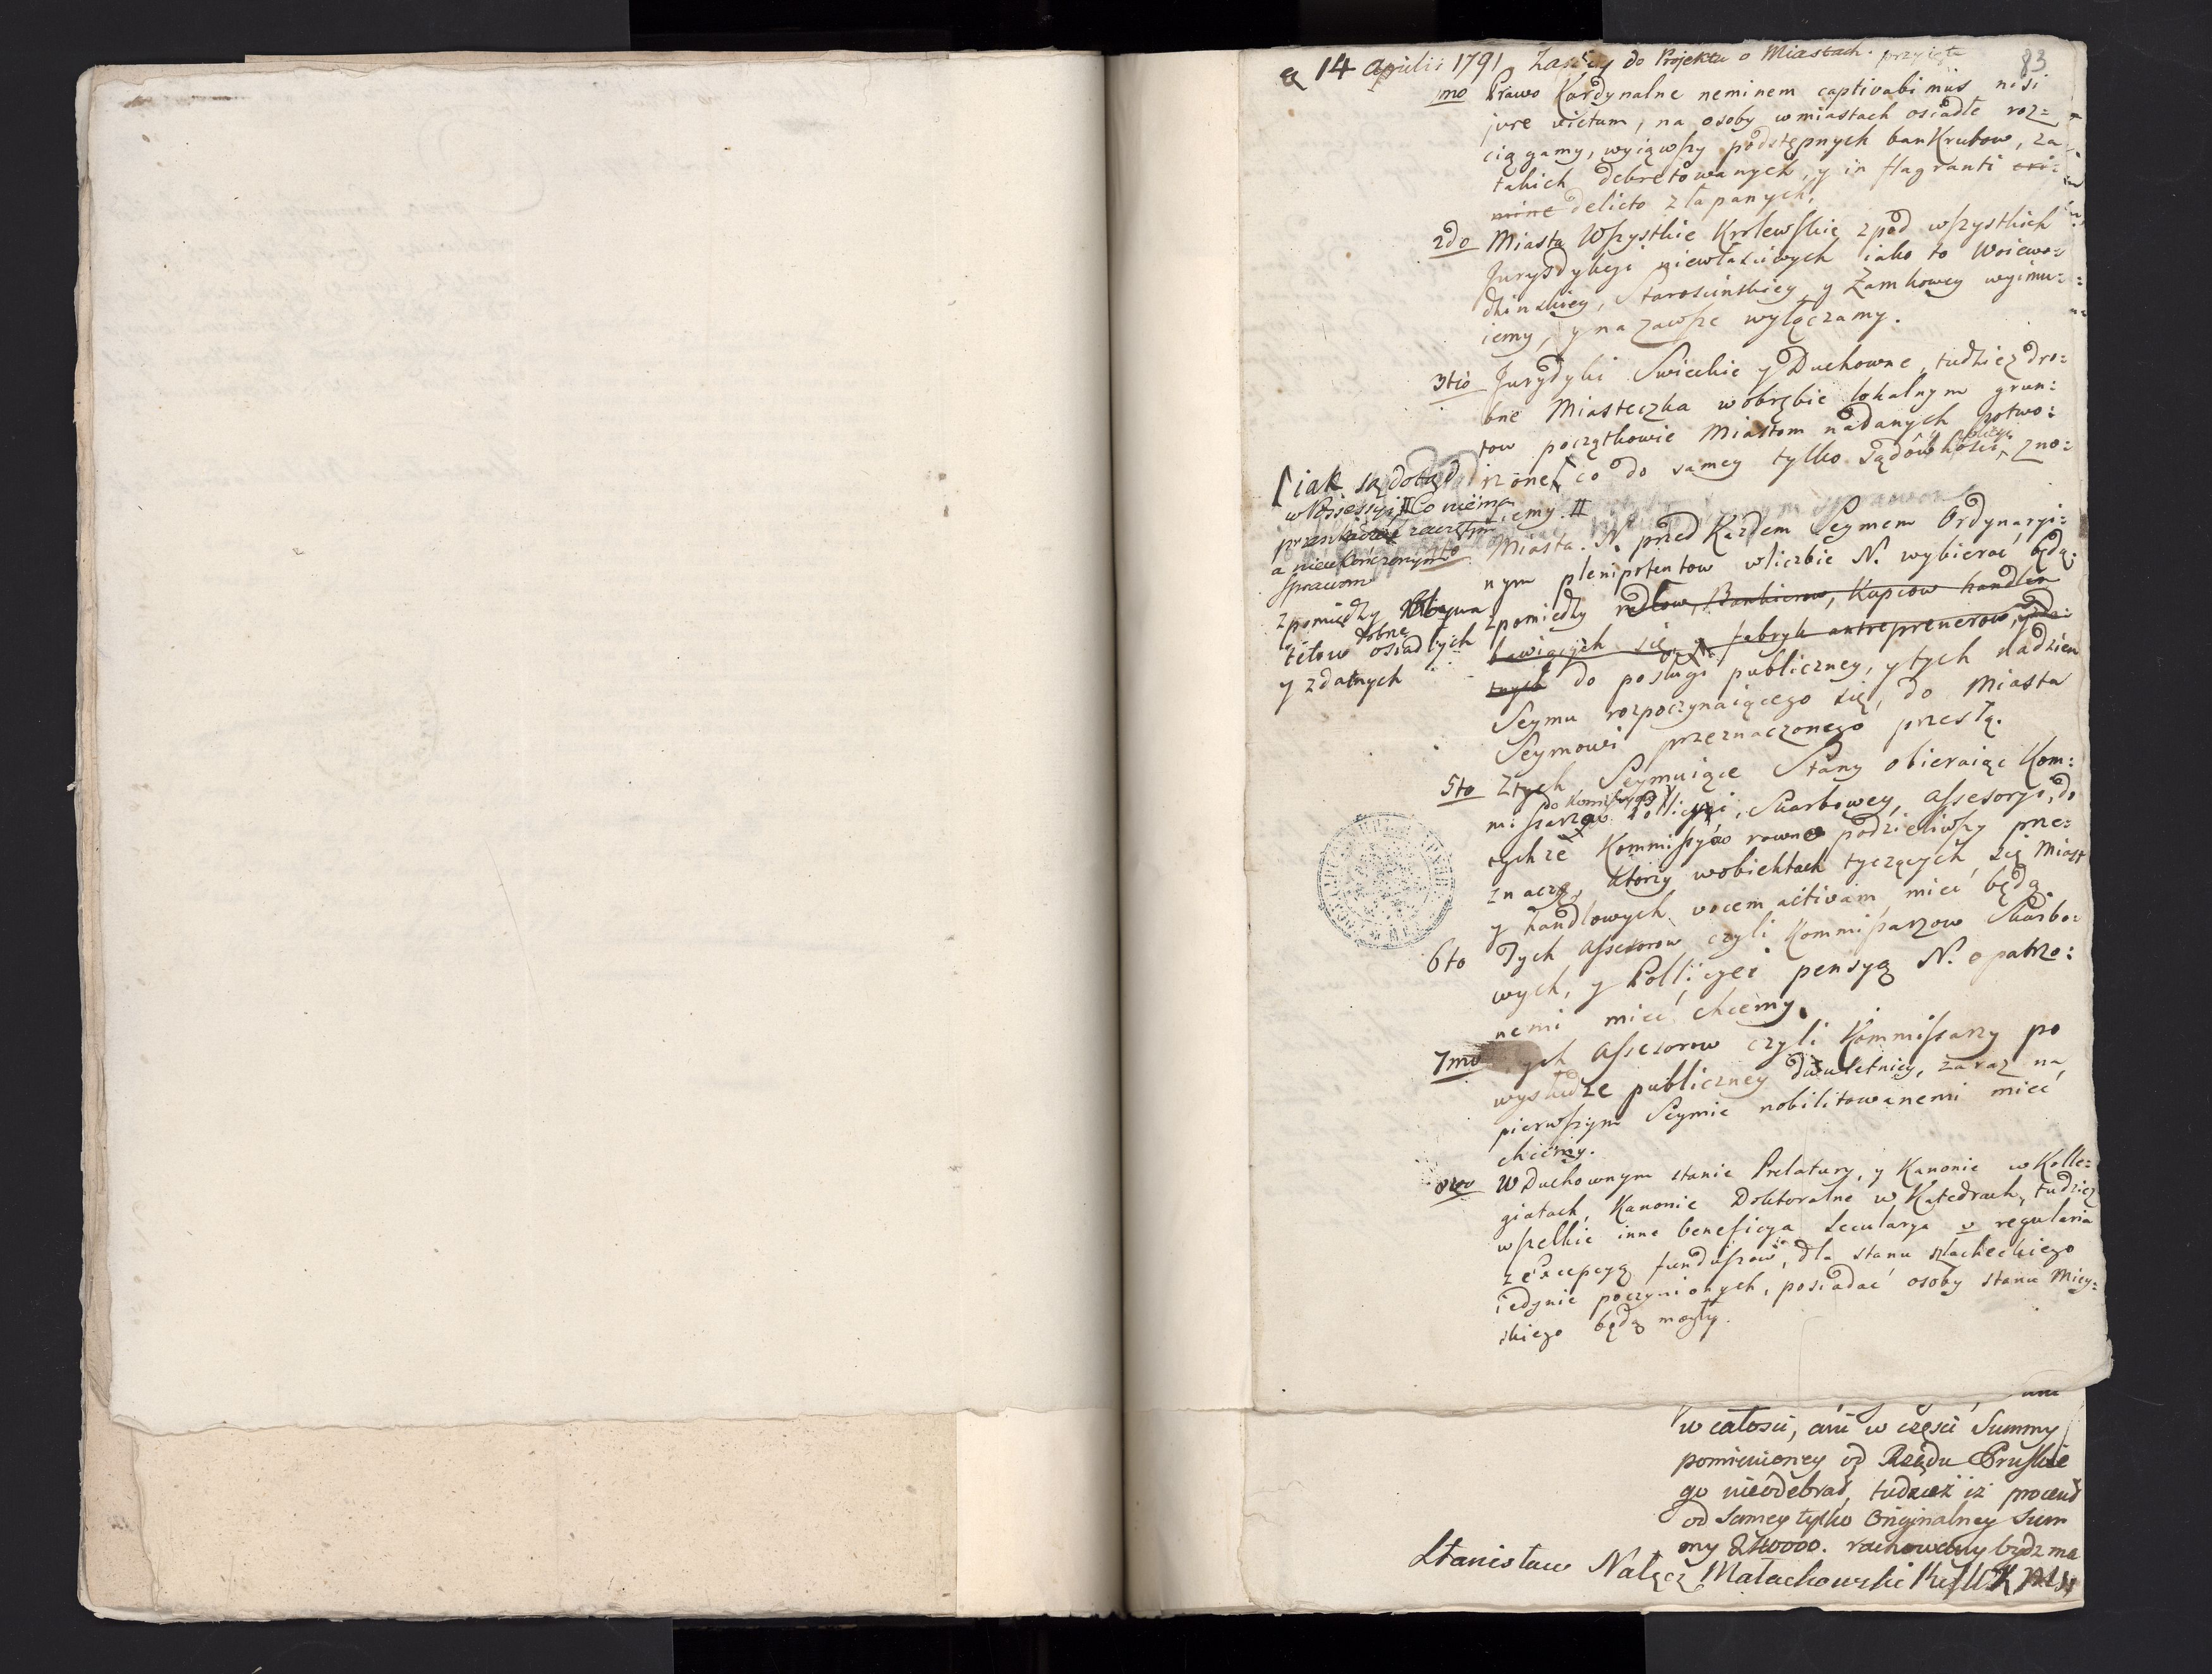 a 14 Aprilis 1791 Zasady do Projektu o Miastach. przyięte
83
1mo Prawo Kardynalne neminem captivabimus nisi
jure victum, na osoby w miastach osiadłe roz=
ciągamy, wyiąwszy podstępnych bankrutow, za
takich dekretowanych, y in flagranti cri=
mine delicto złapanych,
2do Miasta Wszystkie Krolewskie z pod wszystkich
Jurysdykcyi niewłaściwych iako to Woiewo=
dzinskiey, Starościnskiey y Zamkowey wyimu=
iemy, y na zawsze wyłączamy.
3tio Jurydyki Swieckie y Duchowne, tudziez dro=
bne Miasteczka w obrębie lokalnym grun=
tow początkowie Miastom nadanych potwo=
rzone co do samey tylko sądowności, zno=
iemy. #
[iak są dotąd
w Possessyi # Co niema
a nieukonczonym
Sprawom
4to Miasta N. przed Każdem Seymem Ordynaryi=
nym plenipotentow w liczbie N. wybierać będą.
z pomiędzy redlow, Bankierow, Kupcow handlem
bawiących się, y fabryk antreprenerow, zda=
tnych do posługi publiczney, y tych na dzien
Seymu rozpoczynaiącego się, do Miasta
Seymowi przeznaczonego przesłą.
z pomiędzy Obywa
telow dobrze osiadłych
y zdatnych
5to Z tych Seymuiące Stany obieraiąc Kom=
do Kommissyi
missarzow Policyi, Skarbowey, Assesorjo, do
tychże Kommissyiow rowno podzieliwszy prze=
znaczą, ktorzy w obiektach tyczących się Miast
y handlowych vocem activam mieć będą.
6to Tych Assessorow czyli Kommissarzow Skarbo=
wych, y Pollicyei pensyą N. opatrzo=
nemi mieć chcemy.
7mo ych Assessorow czyli Kommissarzy po
wysłudze publiczney dwuletniey, zaraz na
pierwszym Seymie nobilitowanemi mieć
chcemy.
8vo W Duchownym stanie Prelatury, y Kanonie w Kolle=
giatach, Kanonie Doktoralne w Katedrach, tudziez
wszelkie inne beneficya secularya v regularia
z excepcyą funduszow, dla stanu szlacheckiego
iedynie poczynionych, posiadać osoby stanu Miey=
skiego będą mogły.
ani
w całosci, ani w części Summy
pomienioney od Rządu Pruskie
go nieodebrał, tudzież iż procent
od samey tylko Originalney Sum
my 240000. rachowany bydz ma
Stanisław Nałęcz Małachowski